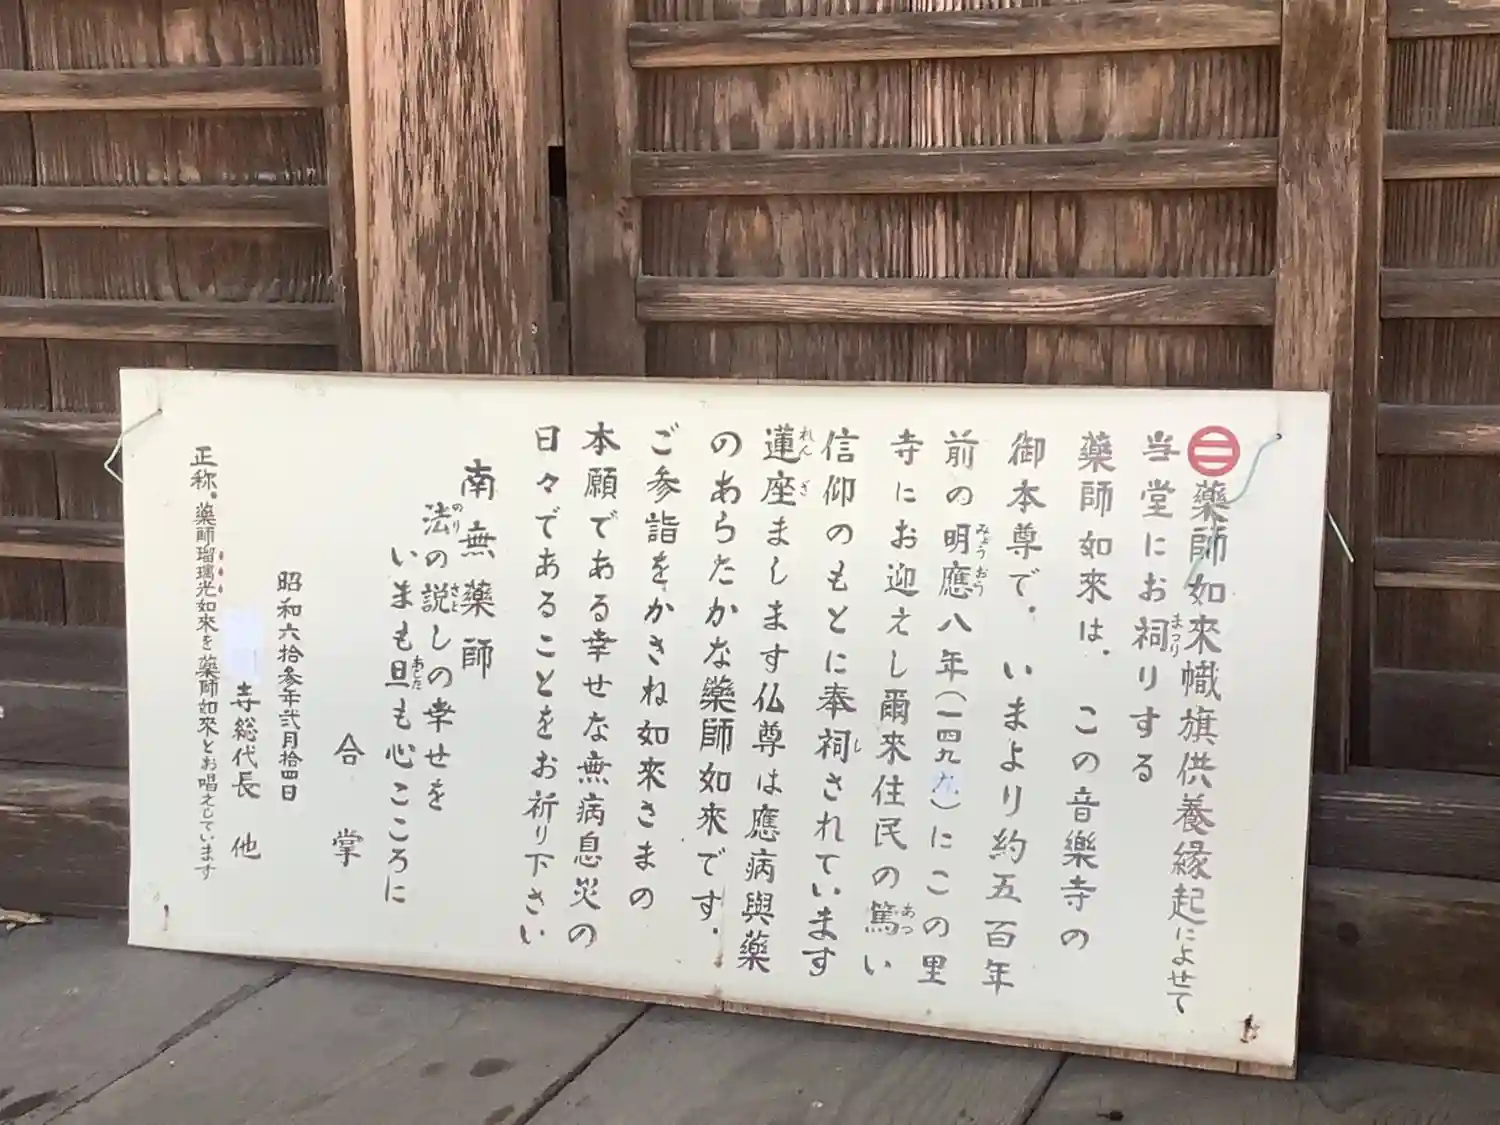 薬師如來幟旗供養縁起によせて
当堂にお祠りする
薬師如來は、この音樂寺の
御本尊で、いまより約五百年
前の明應八年(一四九九)にこの里
寺にお迎えし爾来住民の篤い
信仰のもとに奉祠されています
蓮座まします仏尊は應病與薬
のあらたかな薬師如来です。
ご参詣をかさね如来さまの
本願である幸せな無病息災の
日々であることをお祈り下さい
南無薬師
法の説しの幸せを
いまも旦も心こころに
合掌
昭和六拾参年弐月拾四日
寺総代長 他
正称。薬師瑠璃光如來を薬師如來とお唱えしています